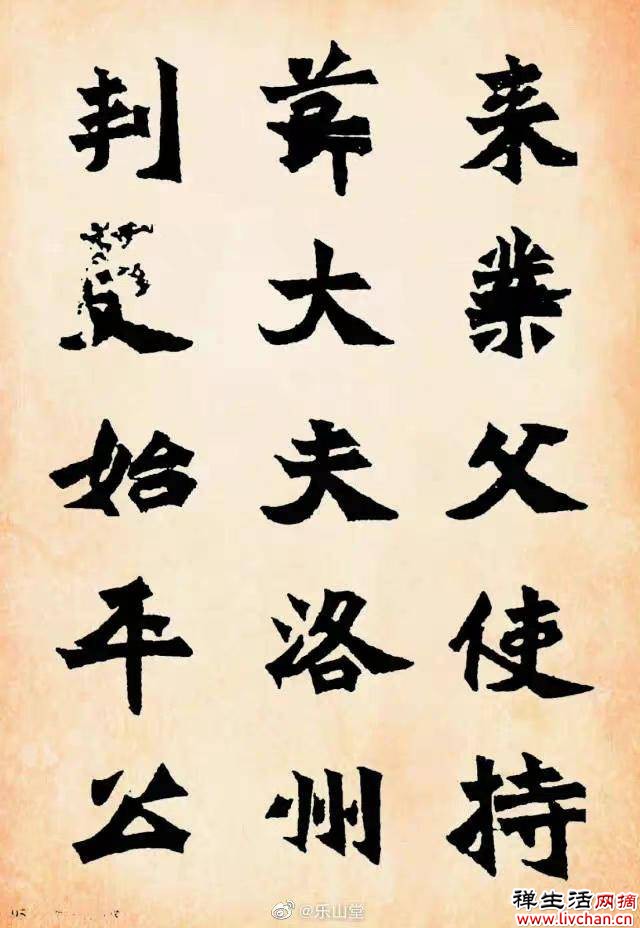 来業父使持
節大夫洛州
刺始平公
@乐山堂
禅生活网摘
www.livchan.cn